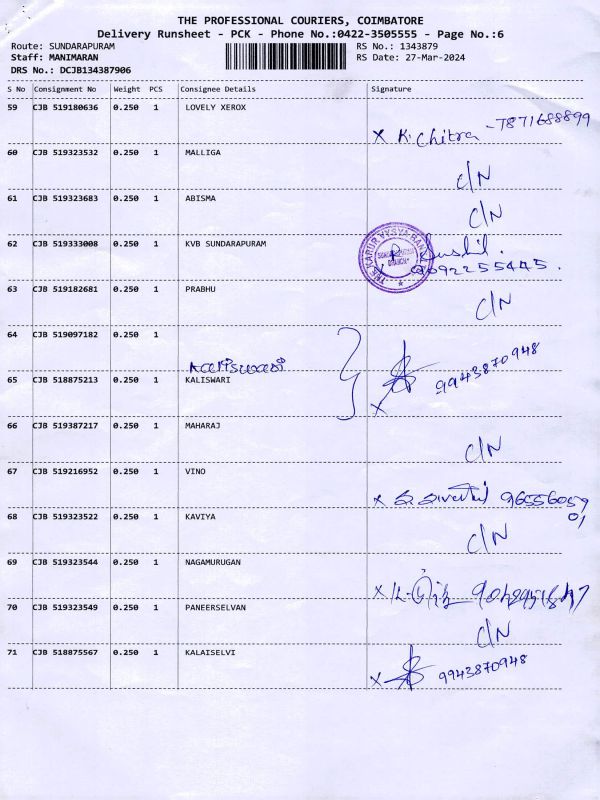 THE PROFESSIONAL COURIERS, COIMBATORE
Delivery Runsheet - PCK - Phone No.:0422-3505555 - Page No.:6
Route: SUNDARAPURAM RS No.: 1343879
Staff: MANIMARAN RS Date: 27-Mar-2024
DRS No.: DCJB134387906
S No Consignment No Weight PCS Consignee Details Signature
59 CJB 519180636 0.250 1 LOVELY XEROX
x K. Chitra - 7871688899
60 CJB 519323532 0.250 1 MALLIGA
C/N
61 CJB 519323683 0.250 1 ABISMA
C/N
62 CJB 519333008 0.250 1 KVB SUNDARAPURAM
THE KARUR VYSYA BANK
BRANCH
9092255445.
63 CJB 519182681 0.250 1 PRABHU
C/N
64 CJB 519097182 0.250 1
Kaliswari
x 9943870948
65 CJB 518875213 0.250 1 KALISWARI
66 CJB 519387217 0.250 1 MAHARAJ
C/N
67 CJB 519216952 0.250 1 VINO
x 96556059
01
68 CJB 519323522 0.250 1 KAVIYA
C/N
69 CJB 519323544 0.250 1 NAGAMURUGAN
x
70 CJB 519323549 0.250 1 PANEERSELVAN
C/N
71 CJB 518875567 0.250 1 KALAISELVI
x 9943870948